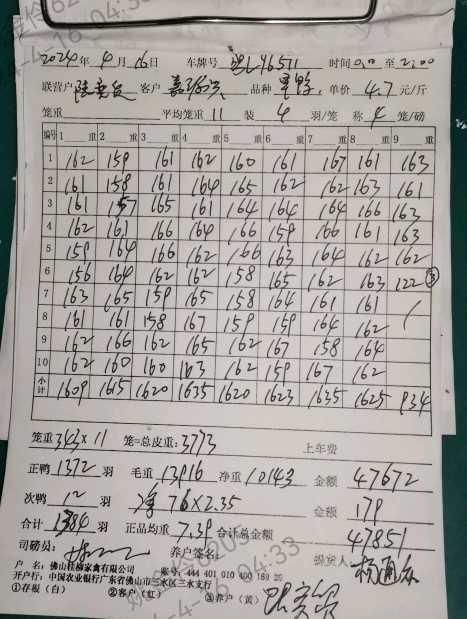 2024年4月16日 车牌号 时间0:00至2:00
联营户 客户 品种 单价4.7元/斤
笼重 平均笼重11 装4羽/笼 称4笼/磅
编号 1重 2重 3重 4重 5重 6重 7重 8重 9重
1 162 159 161 162 160 161 167 161 163
2 161 158 161 164 165 162 162 163 161
3 161 157 165 161 164 164 164 166 163
4 162 161 166 164 166 159 166 161 163
5 159 164 166 162 166 163 164 162 162
6 156 164 162 162 158 165 162 163 122 ③
7 163 165 159 165 158 164 161 161
8 161 161 158 167 159 159 164 162
9 162 166 162 165 162 167 158 164
10 162 160 160 163 162 159 167 162
小计 1609 1615 1620 1635 1620 1623 1635 1625 934
笼重343×11 笼=总皮重:3773 上车费
正鸭1372羽 毛重13916 净重10143 金额47672
次鸭12羽 净76×2.35 金额179
合计1384羽 正品均重7.39 合计总金额47851
司磅员: 养户签名: 提货人:
户 名:佛山桂柳家禽有限公司 账号:444 401 010 400 169 20
开户行:中国农业银行广东省佛山市三水区三水支行
①存根(白) ②客户(红) ③养户(黄)